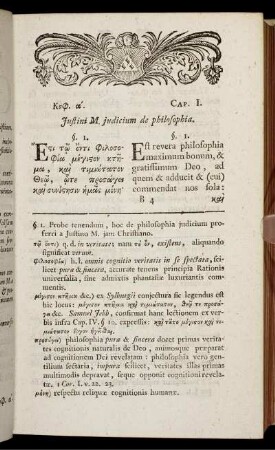 Κεφ. α'.
CAP. I.
Justini M. judicium de philosophia.
§. 1.
Ἔςι τῷ ὄντι Φιλοσο-
Φία μέγιςον κτῆ-
μα, καὶ τιμιώτατον
Θεῷ, ᾧτε προσάγει
καὶ συνίςησιν ἡμᾶς μόνη·
§. 1.
Est revera philosophia
maximum bonum, &
gratissimum Deo, ad
quem & adducit & (cui)
commendat nos sola:
B 4
καὶ
§. 1. Probe tenendum, hoc de philosophia judicium pro-
ferri a Justino M. jam Christiano.
τῷ ὄντι) q. d. in veritatis nam τὸ ὂν, existens, aliquando
significat verum.
Φιλοσοφία) h. l. omnis cognitio veritatis in se spectata, sci-
licet pura & sincera, accurate tenens principia Rationis
universalis, sine admistis phantasiæ luxuriantis com-
mentis.
μέγιςον κτῆμα &c.) ex Sylburgii conjectura sic legendus est
hic locus: μέγιςον κτῆμα καὶ τιμιώτατον, Θεῷ τε προσά-
γει &c. Samuel Jebb, confirmat hanc lectionem ex ver-
bis infra Cap. IV. §. 10. expressis:
προσάγει) philosophia pura & sincera docet primas verita-
tes cognitionis naturalis de Deo, animosque præparat
ad cognitionem Dei revelatam: philosophia vero gen-
tilium sectaria, impura scilicet, veritates illas primas
multimodis depravat, seque opponit cognitioni revela-
tæ, 1 Cor. I. v. 22. 23.
μόνη) respectu reliquæ cognitionis humanæ.